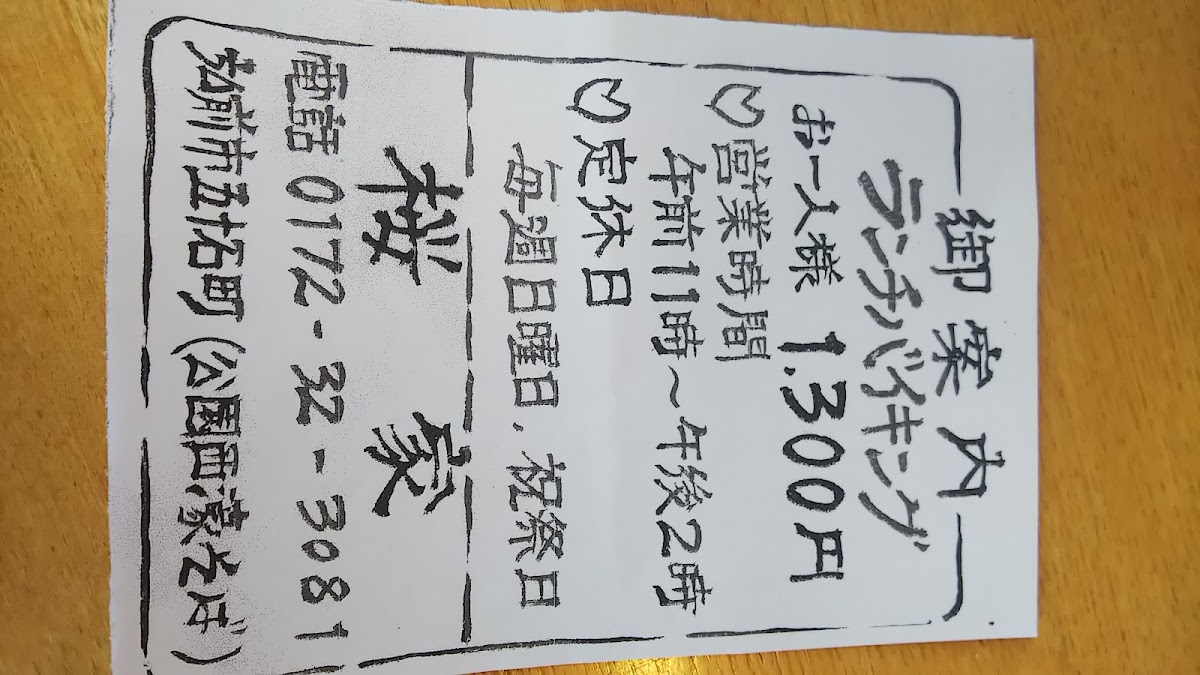 御案内
ランチバイキング
お一人様 1.300円
♡営業時間
午前11時～午後2時
♡定休日
毎週日曜日、祝祭日
桜家
電話 0172-32-3081
弘前市五十石町(公園西濠そば)